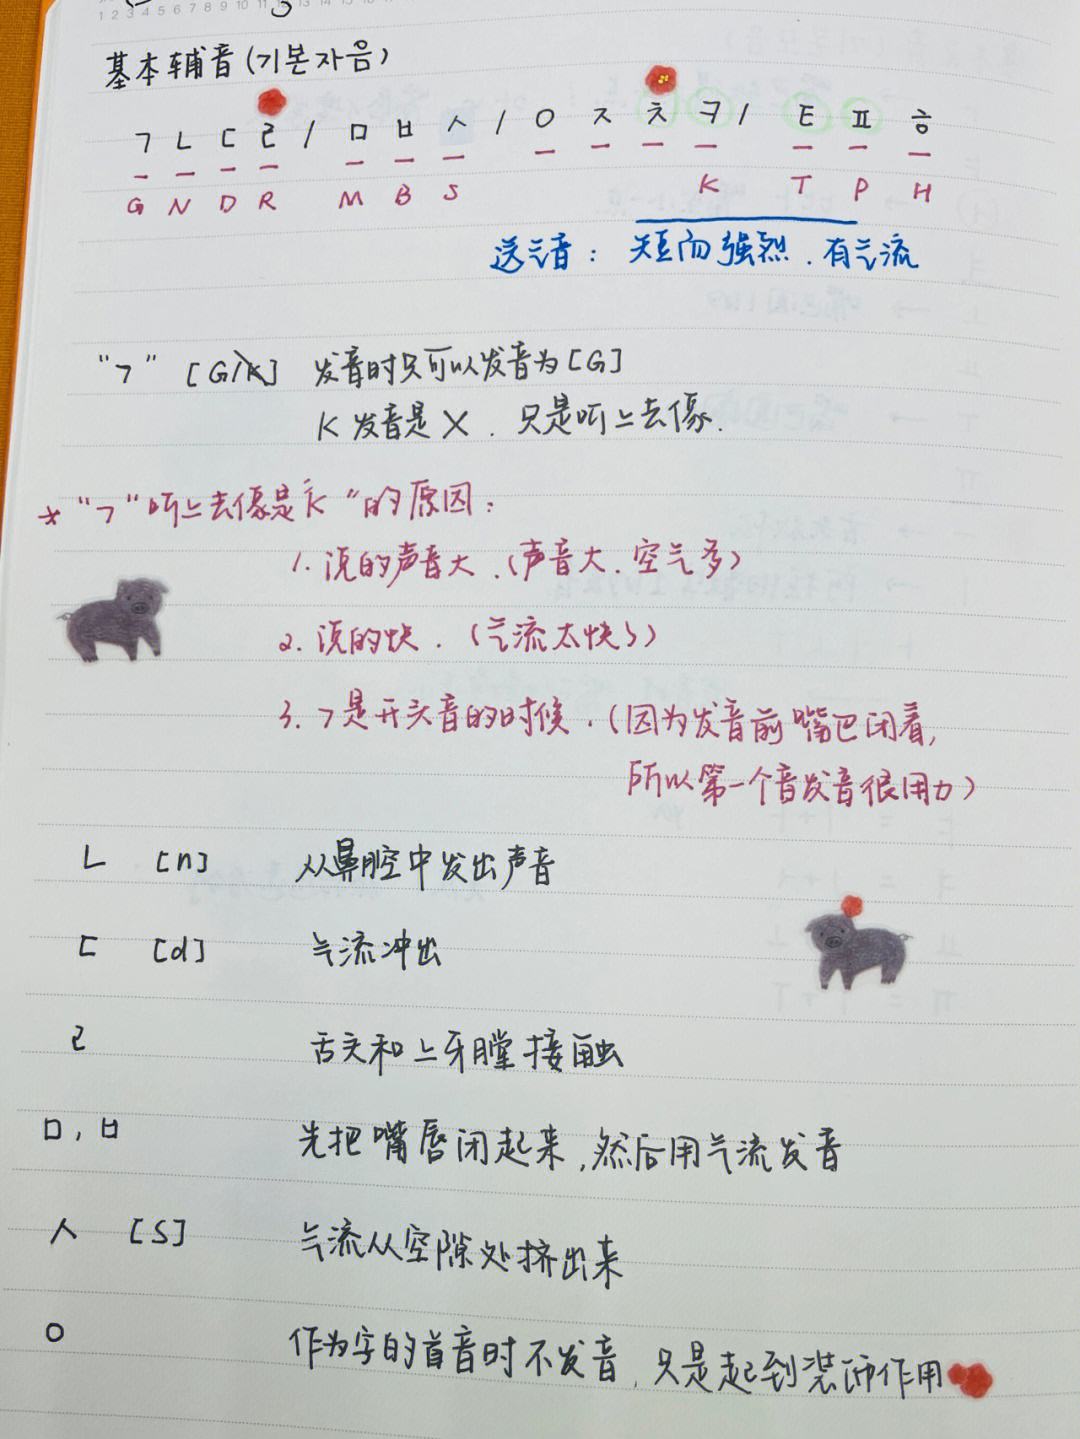 1 2 3 4 5 6 7 8 9 10 11
基本辅音(기본자음)
ㄱ ㄴ ㄷ ㄹ / ㅁ ㅂ ㅅ / ㅇ ㅈ ㅊ ㅋ / ㅌ ㅍ ㅎ
G N D R M B S K T P H
送气音: 短而强烈.有气流
"ㄱ" [G/K] 发音时只可以发音为[G]
K 发音是 X. 只是听上去像.
* "ㄱ"听上去像是"k"的原因:
1.说的声音大.(声音大.空气多)
2.说的快.(气流太快了)
3.ㄱ是开头音的时候.(因为发音前嘴巴闭着,
所以第一个音发音很用力)
ㄴ [n] 从鼻腔中发出声音
ㄷ [d] 气流冲出
ㄹ 舌头和上牙膛接触
ㅁ,ㅂ 先把嘴唇闭起来,然后用气流发音
ㅅ [S] 气流从空隙处挤出来
ㅇ 作为字的首音时不发音,只是起到装饰作用